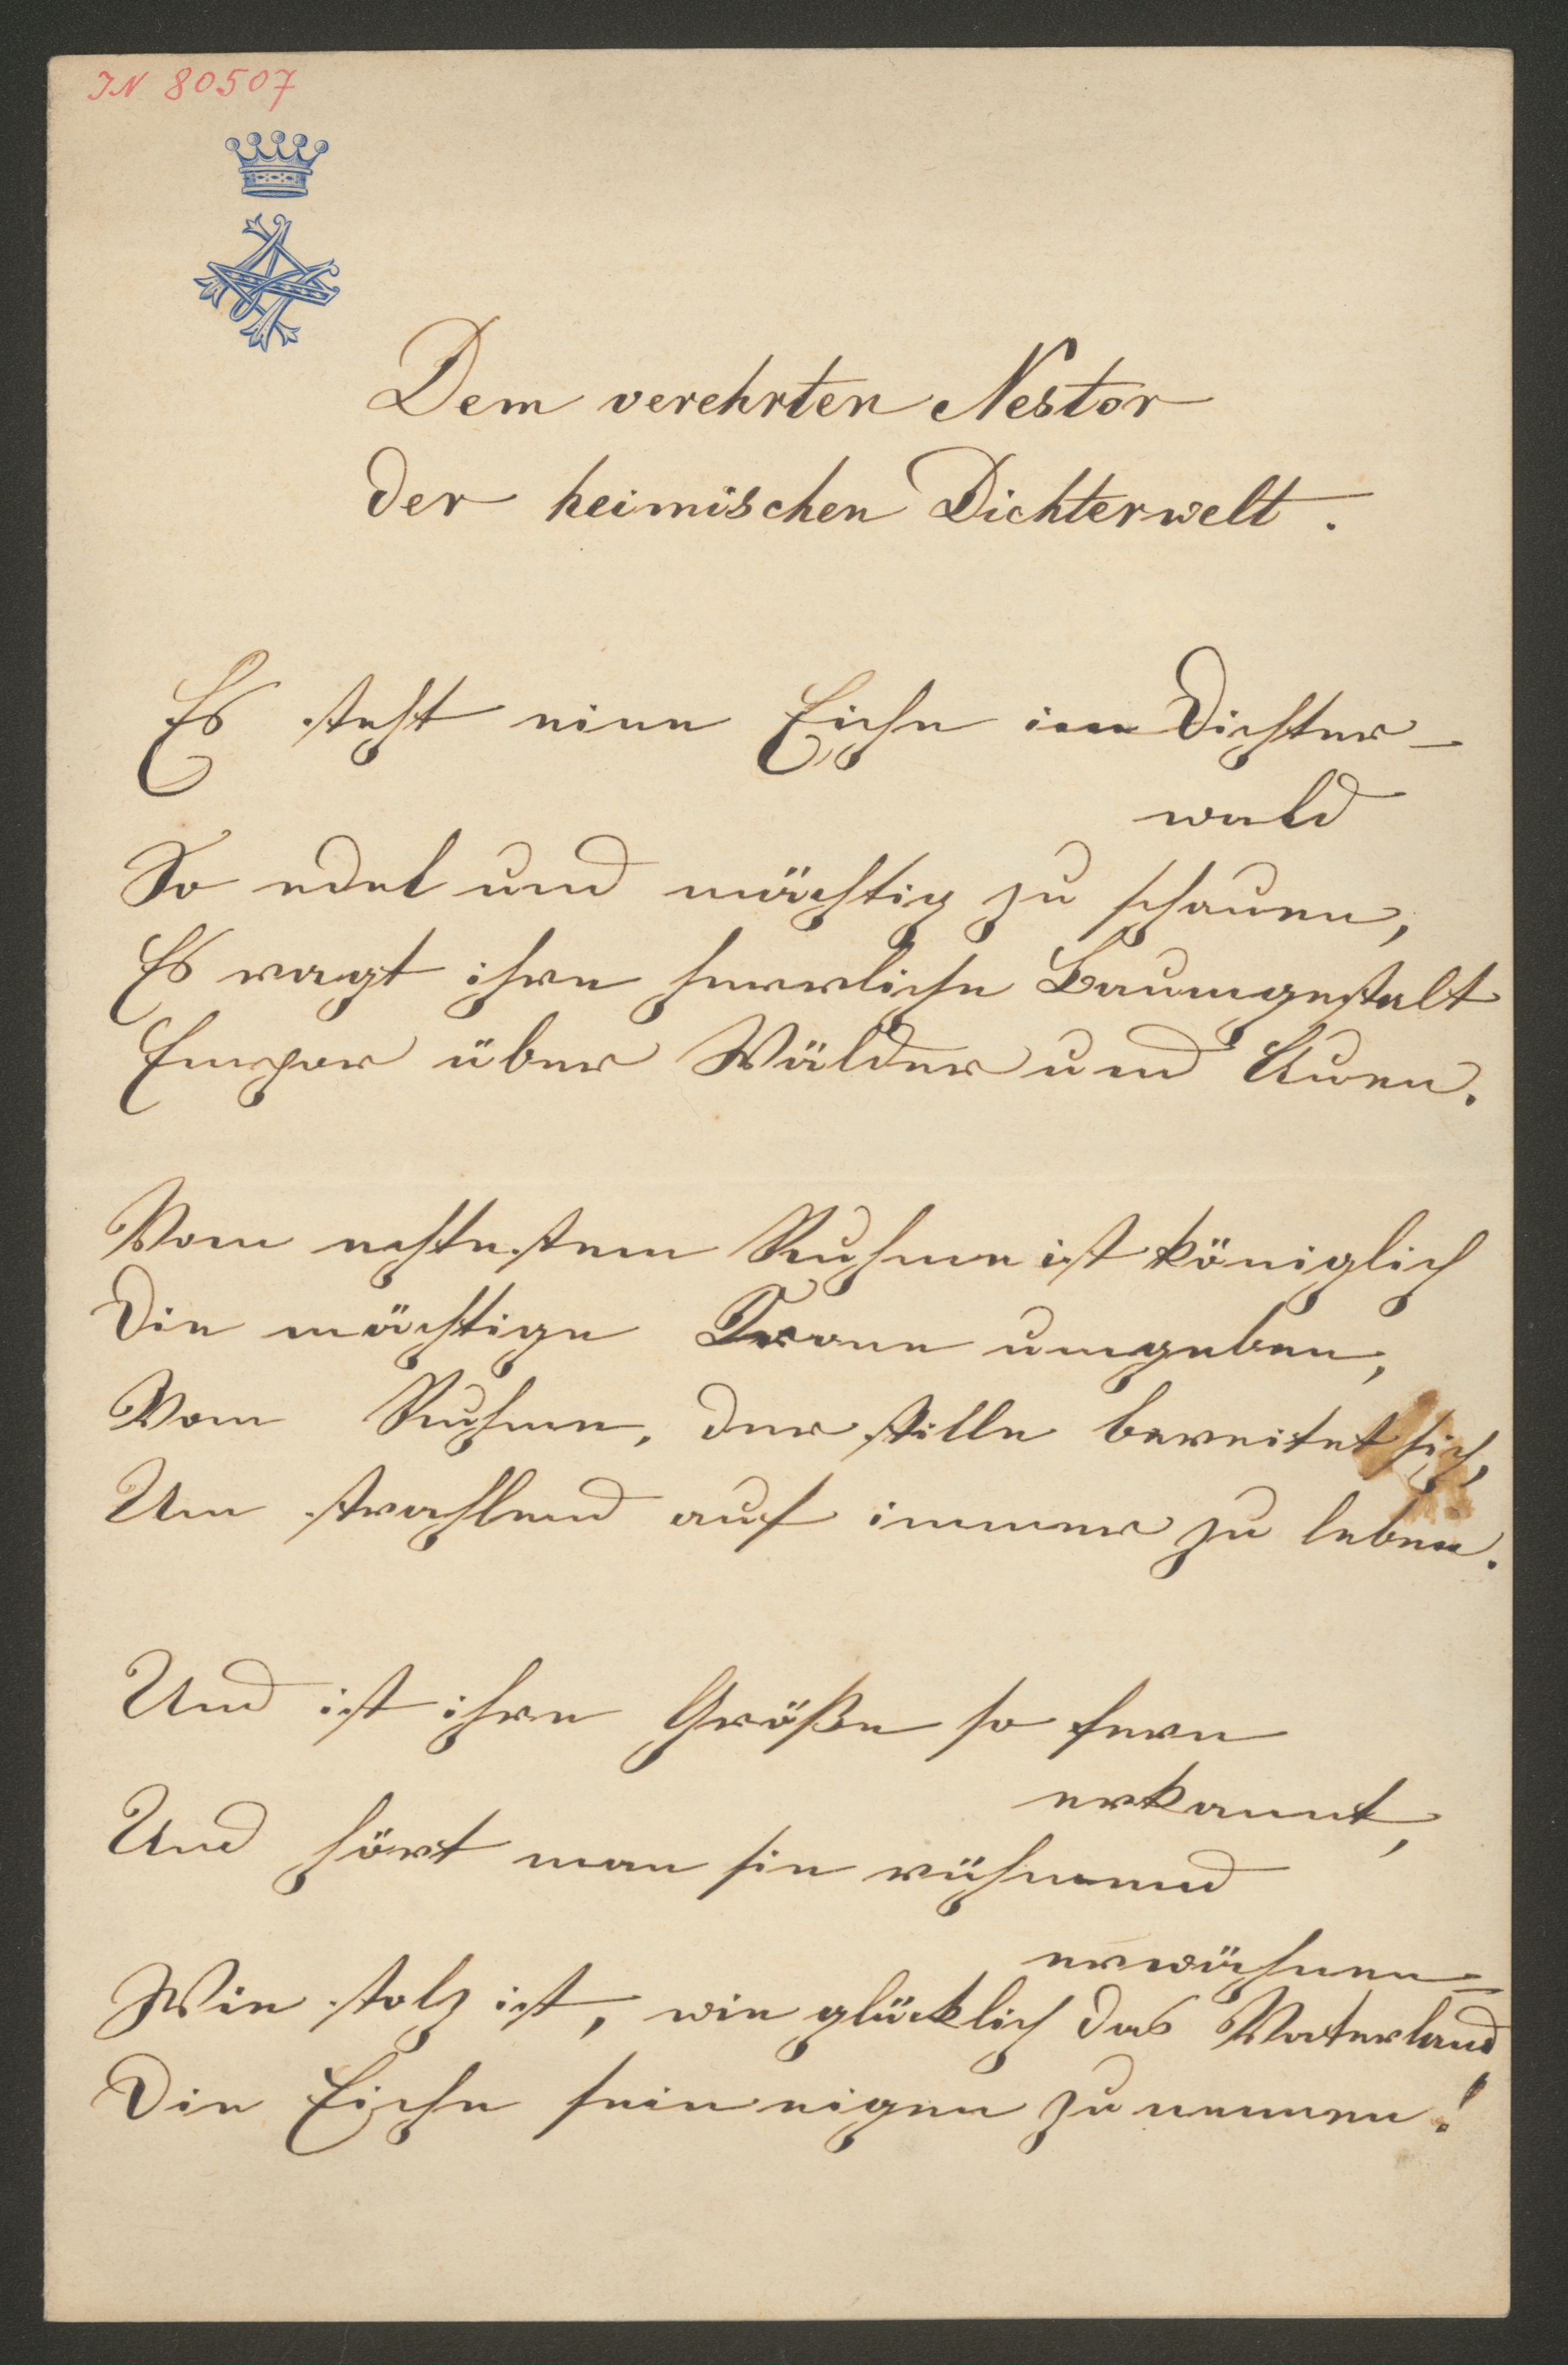 IN 80507
Dem verehrten Nestor
der heimischen Dichterwelt.
Es steht eine Eiche im Dichter-
wald
So edel und mächtig zu schauen,
Es ragt ihre herrliche Baumgestalt
Empor über Wälder und Auen.
Vom echtestem Ruhme ist königlich
Die mächtige Krone umgeben,
Vom Ruhme, der stille bereitet sich,
Um strahlend auf immer zu leben.
Und ist ihre Größe so fern
erkannt,
Und hört man sie rühmend
erwähnen –
Wie stolz ist, wie glücklich das Vaterland
Die Eiche sein eigen zu nennen!